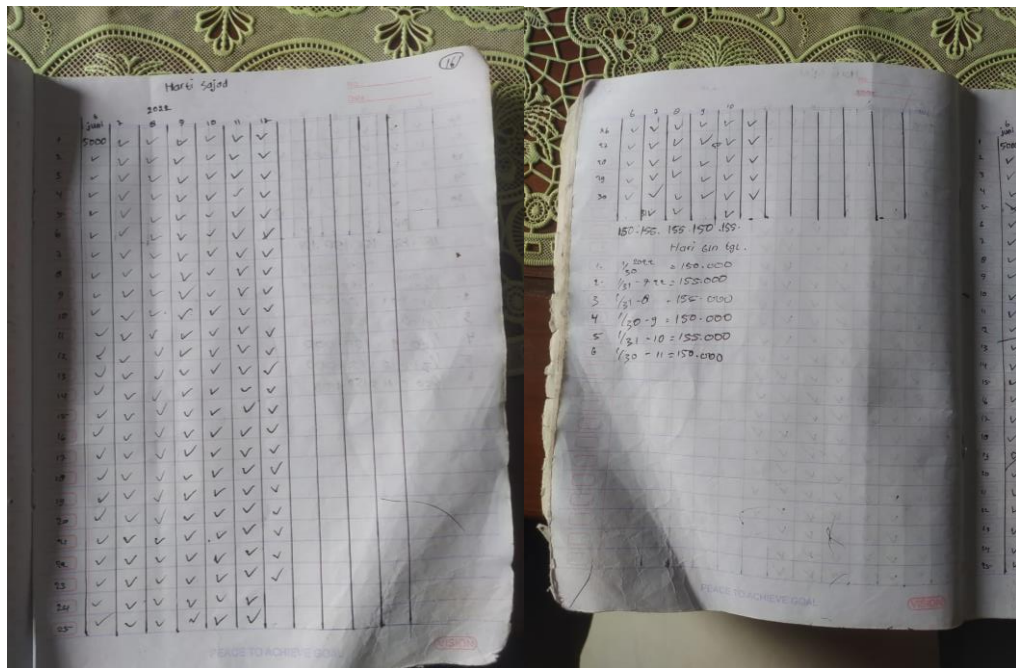 16
Harti Sajad
2022
6 7 8 9 10 11 12
juni
1 5000 ✓ ✓ ✓ ✓ ✓ ✓
2 ✓ ✓ ✓ ✓ ✓ ✓ ✓
3 ✓ ✓ ✓ ✓ ✓ ✓ ✓
4 ✓ ✓ ✓ ✓ ✓ ✓ ✓
5 ✓ ✓ ✓ ✓ ✓ ✓ ✓
6 ✓ ✓ ✓ ✓ ✓ ✓ ✓
7 ✓ ✓ ✓ ✓ ✓ ✓ ✓
8 ✓ ✓ ✓ ✓ ✓ ✓ ✓
9 ✓ ✓ ✓ ✓ ✓ ✓ ✓
10 ✓ ✓ ✓ ✓ ✓ ✓ ✓
11 ✓ ✓ ✓ ✓ ✓ ✓ ✓
12 ✓ ✓ ✓ ✓ ✓ ✓ ✓
13 ✓ ✓ ✓ ✓ ✓ ✓ ✓
14 ✓ ✓ ✓ ✓ ✓ ✓ ✓
15 ✓ ✓ ✓ ✓ ✓ ✓ ✓
16 ✓ ✓ ✓ ✓ ✓ ✓ ✓
17 ✓ ✓ ✓ ✓ ✓ ✓ ✓
18 ✓ ✓ ✓ ✓ ✓ ✓ ✓
19 ✓ ✓ ✓ ✓ ✓ ✓ ✓
20 ✓ ✓ ✓ ✓ ✓ ✓ ✓
21 ✓ ✓ ✓ ✓ ✓ ✓ ✓
22 ✓ ✓ ✓ ✓ ✓ ✓ ✓
23 ✓ ✓ ✓ ✓ ✓ ✓ ✓
24 ✓ ✓ ✓ ✓ ✓ ✓
25 ✓ ✓ ✓ ✓ ✓ ✓
PEACE TO ACHIEVE GOAL
VISION
6 7 8 9 10
26 ✓ ✓ ✓ ✓ ✓ ✓
27 ✓ ✓ ✓ ✓ ✓ ✓
28 ✓ ✓ ✓ ✓ ✓ ✓
29 ✓ ✓ ✓ ✓ ✓ ✓
30 ✓ ✓ ✓ ✓ ✓ ✓
150.155. 155.150.155.
Hari bln tgl.
1. 1/30 2022 = 150.000
2. 1/31 - 7 22 = 155.000
3 1/31 - 8 = 155.000
4 1/30 - 9 = 150.000
5 1/31 - 10 = 155.000
6 1/30 - 11 = 150.000
PEACE TO ACHIEVE GOAL
VISION
6
juni